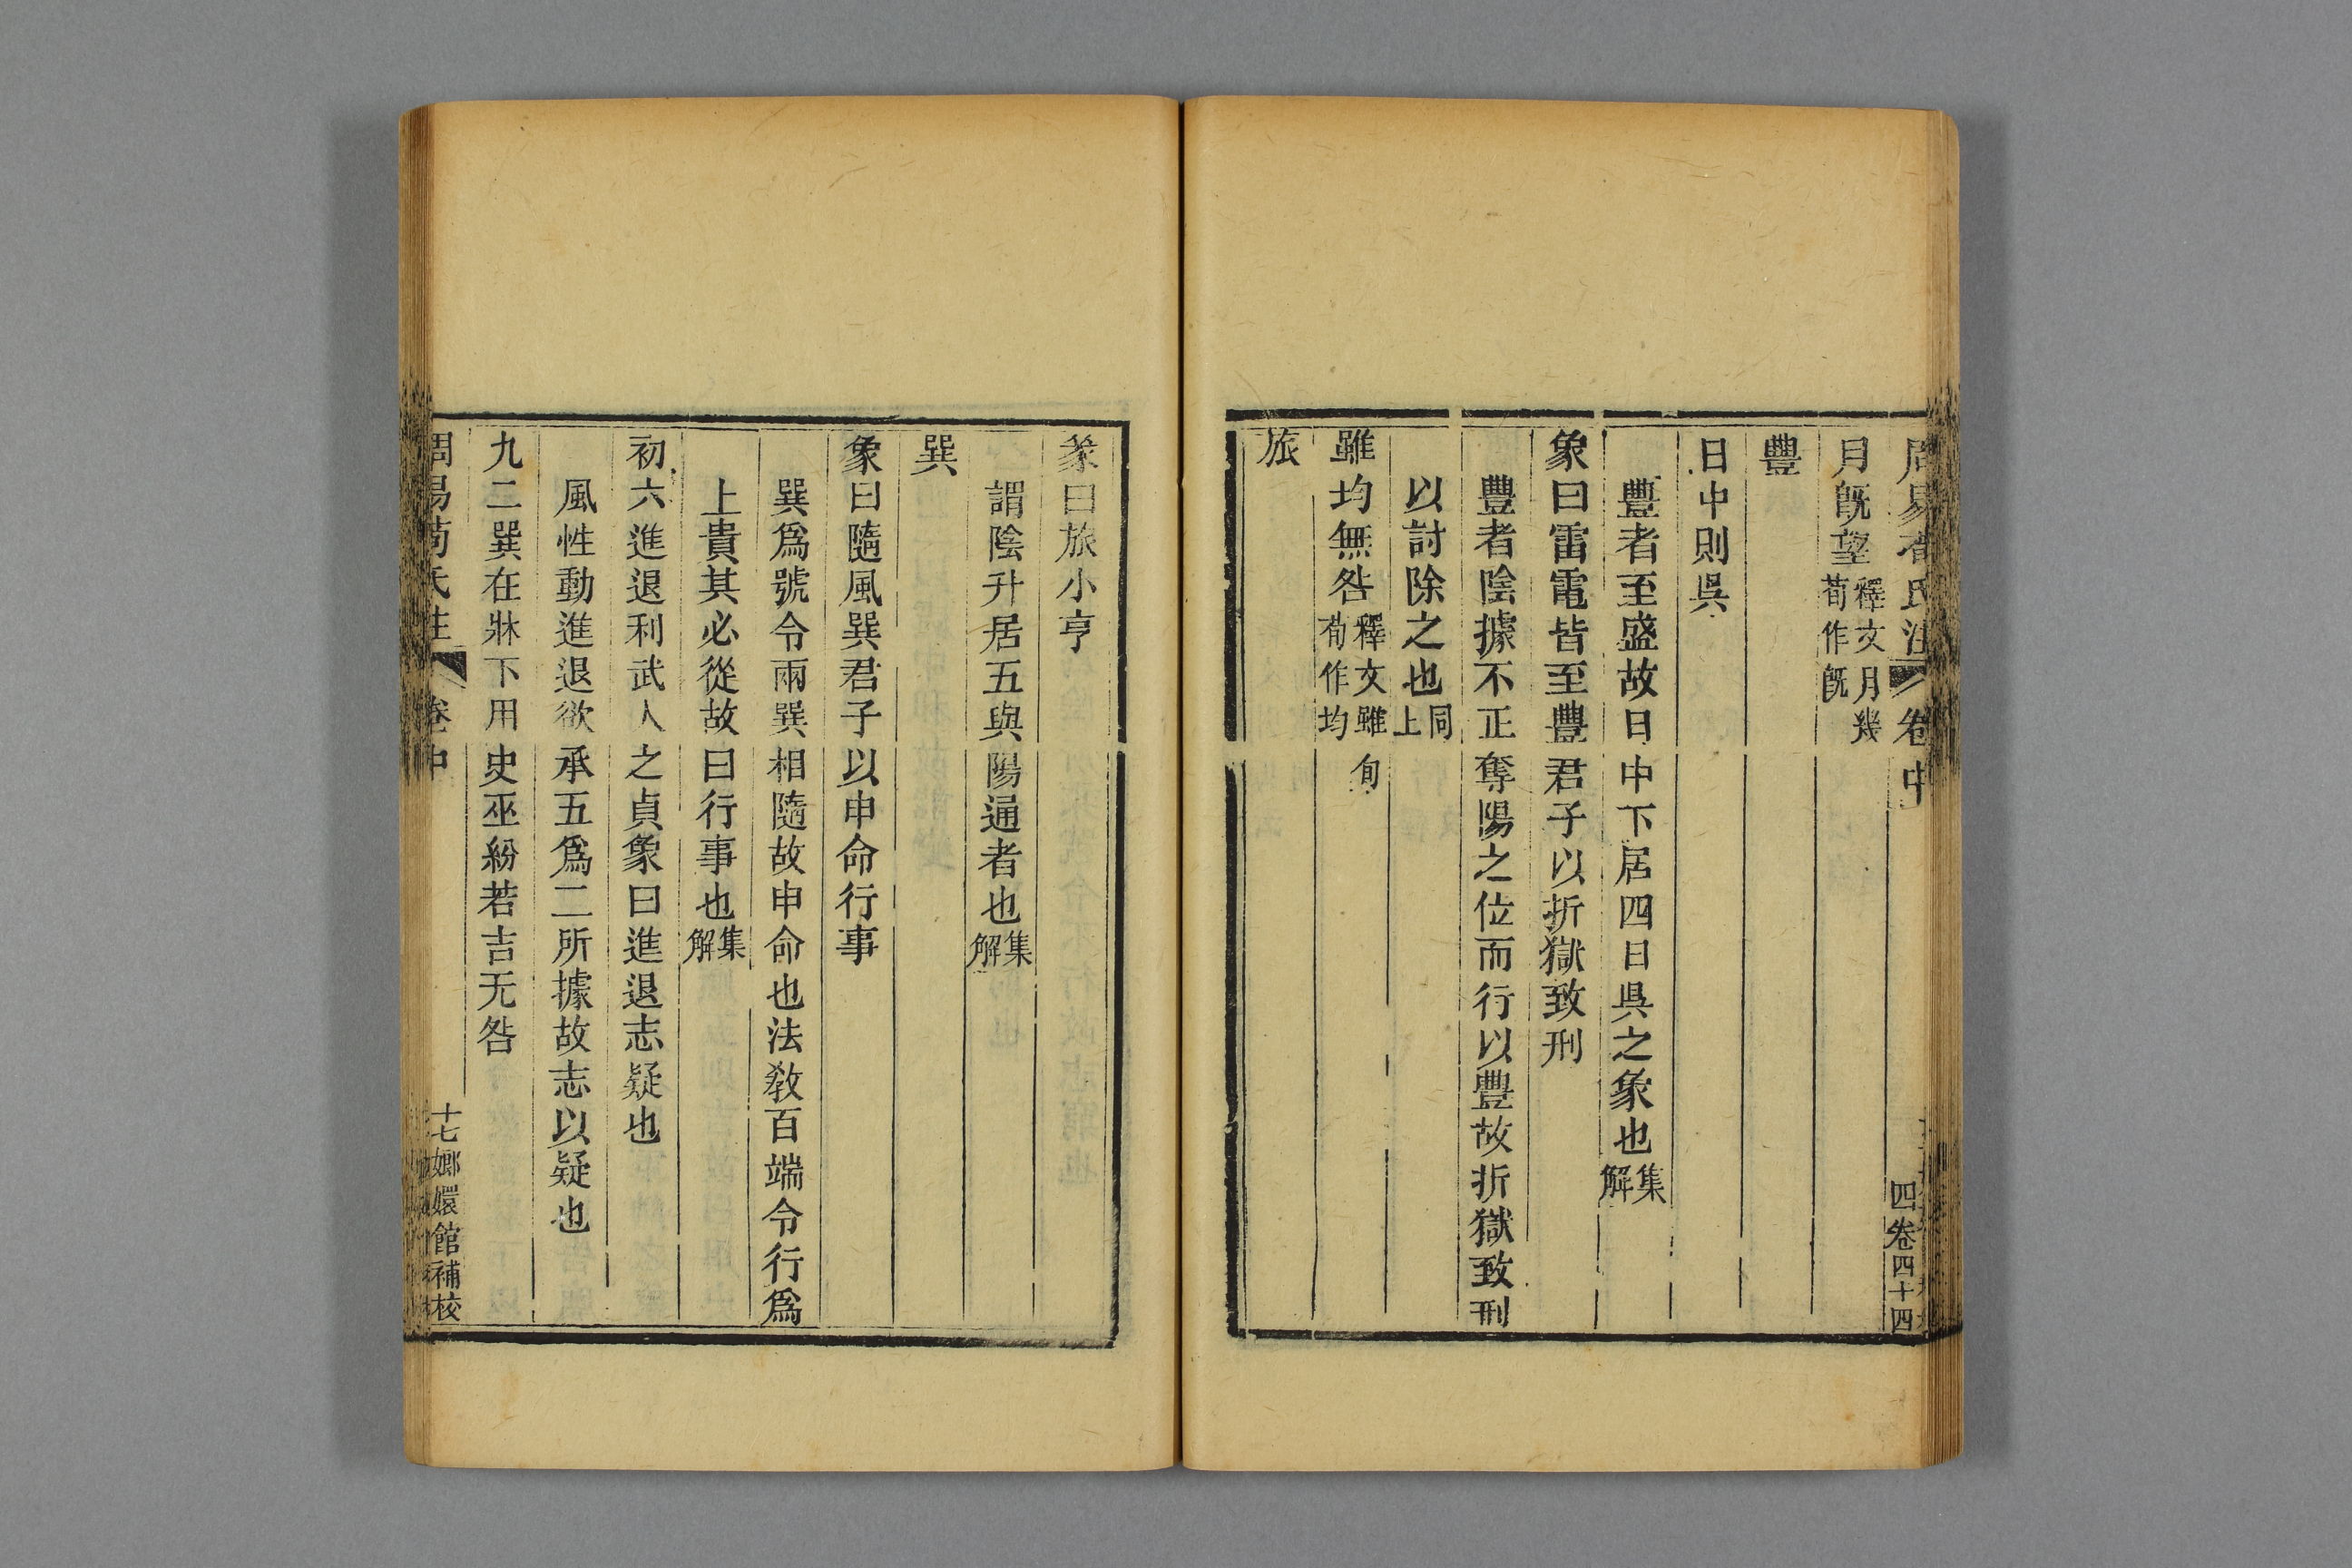 周易荀氏注 卷中 四卷四十四
月旣望釋文月幾荀作旣
豐
日中則吳
豐者至盛故日中下居四日吳之象也集解
象曰雷電皆至豐君子以折獄致刑
豐者陰據不正奪陽之位而行以豐故折獄致刑
以討除之也同上
雖均無咎釋文雖旬荀作均
旅
彖曰旅小亨
謂陰升居五與陽通者也集解
巽
象曰隨風巽君子以申命行事
巽爲號令兩巽相隨故申命也法敎百端令行爲
上貴其必從故曰行事也集解
初六進退利武人之貞象曰進退志疑也
風性動進退欲承五爲二所據故志以疑也
九二巽在牀下用史巫紛若吉无咎
周易荀氏注 卷中 十七 嫏嬛館補校